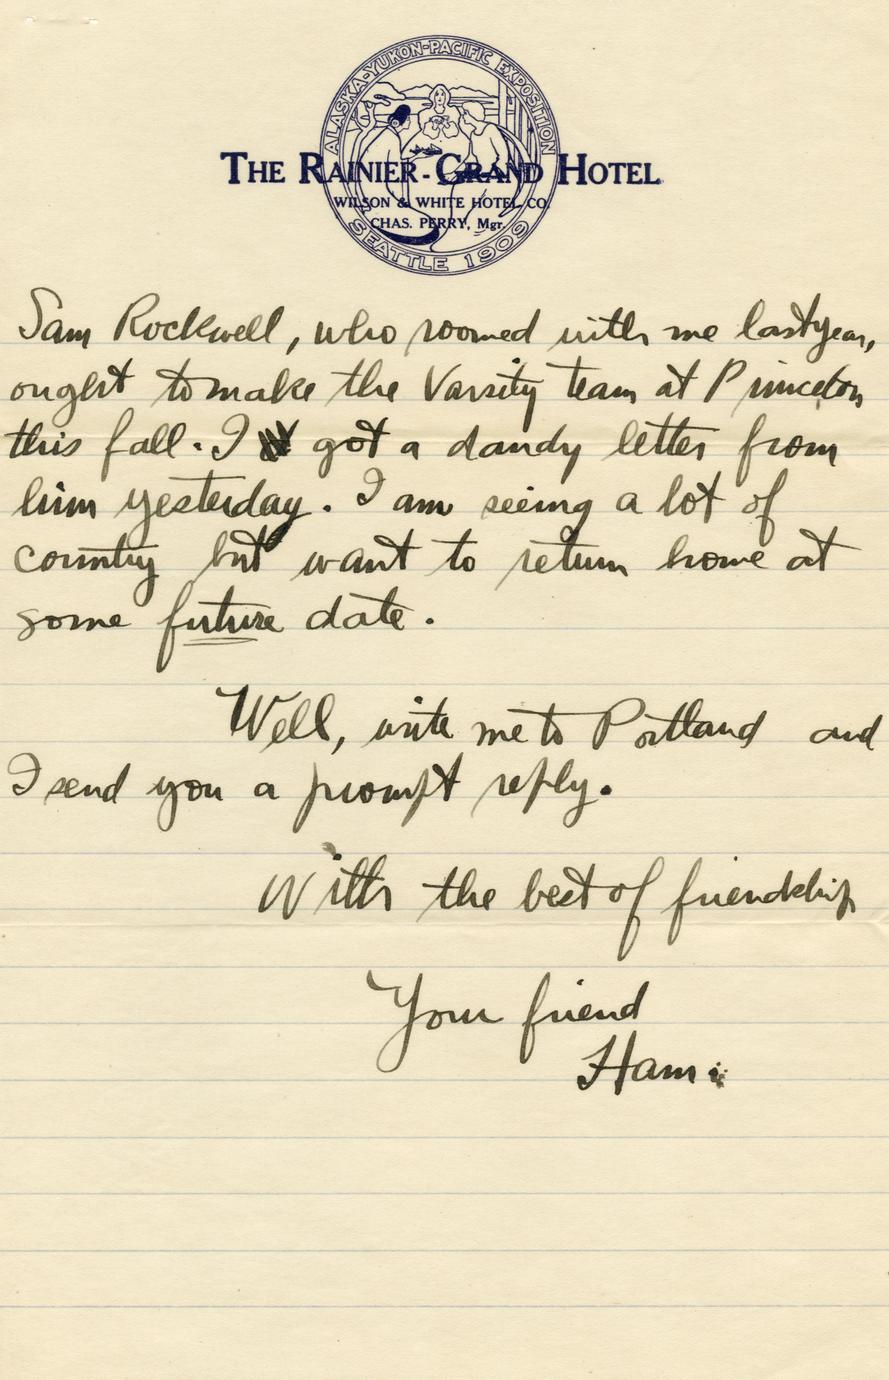 ALASKA-YUKON-PACIFIC EXPOSITION
THE RAINIER-GRAND HOTEL
WILSON & WHITE HOTEL CO.
CHAS. PERRY, Mgr.
SEATTLE 1909
Sam Rockwell, who roomed with me last year,
ought to make the Varsity team at Princeton
this fall. I got a dandy letter from
him yesterday. I am seeing a lot of
country but want to return home at
some future date.
Well, write me to Portland and
I send you a prompt reply.
With the best of friendship
Your friend
Ham.